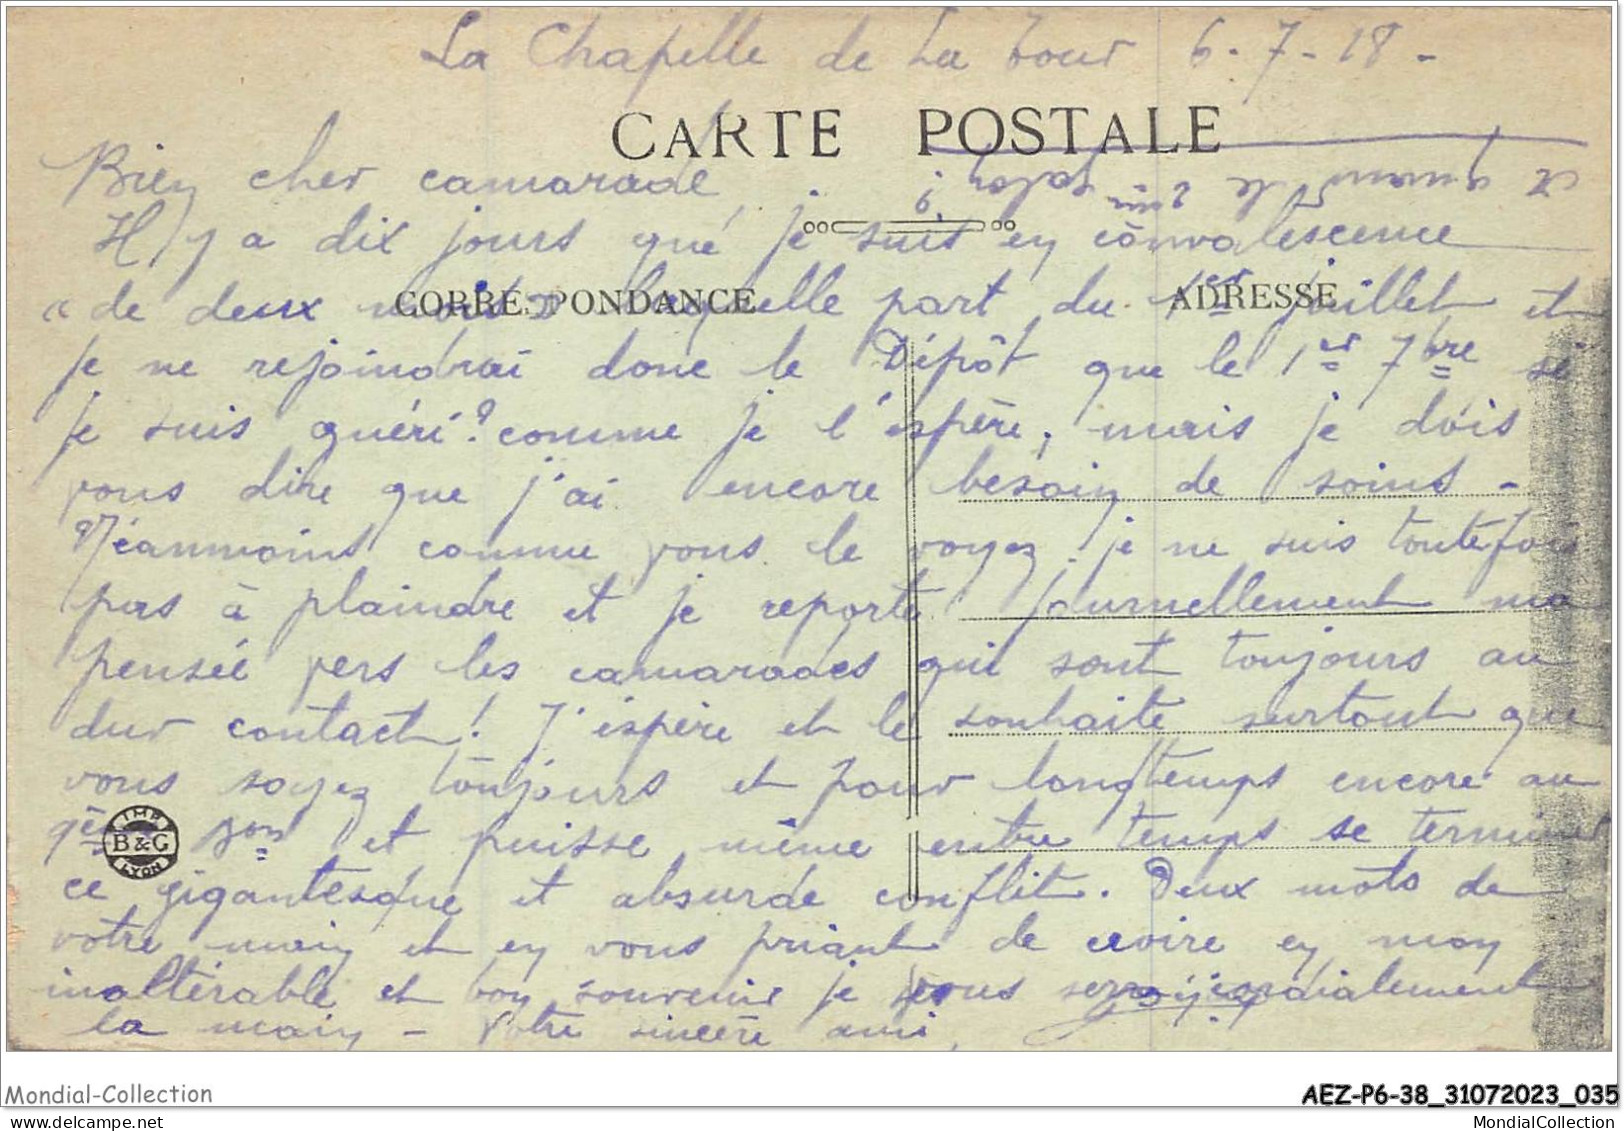 La Chapelle de La Tour 6-7-18-
CARTE POSTALE
Bien cher camarade
Il y a dix jours que je suis en convalescence
CORRESPONDANCE
ADRESSE
« de deux mois » laquelle part du 1er juillet et
je ne rejoindrai donc le Dépôt que le 1er 7bre si
je suis guéri? comme je l'espère, mais je dois
vous dire que j'ai encore besoin de soins -
Néanmoins comme vous le voyez je ne suis toutefois
pas à plaindre et je reporte journellement ma
pensée vers les camarades qui sont toujours au
dur contact! J'espère et le souhaite surtout que
vous soyez toujours et pour longtemps encore au
IMP.
B & G
LYON
et puisse même entre temps se terminer
ce gigantesque et absurde conflit. Deux mots de
votre main et en vous priant de croire en mon
inaltérable et bon souvenir je vous serre cordialement
la main - Votre sincère ami
Mondial-Collection
AEZ-P6-38_31072023_035
MondialCollection
MondialCollection